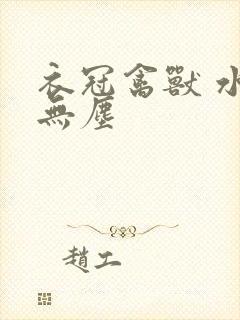 衣冠禽獸 水
無塵
趙工